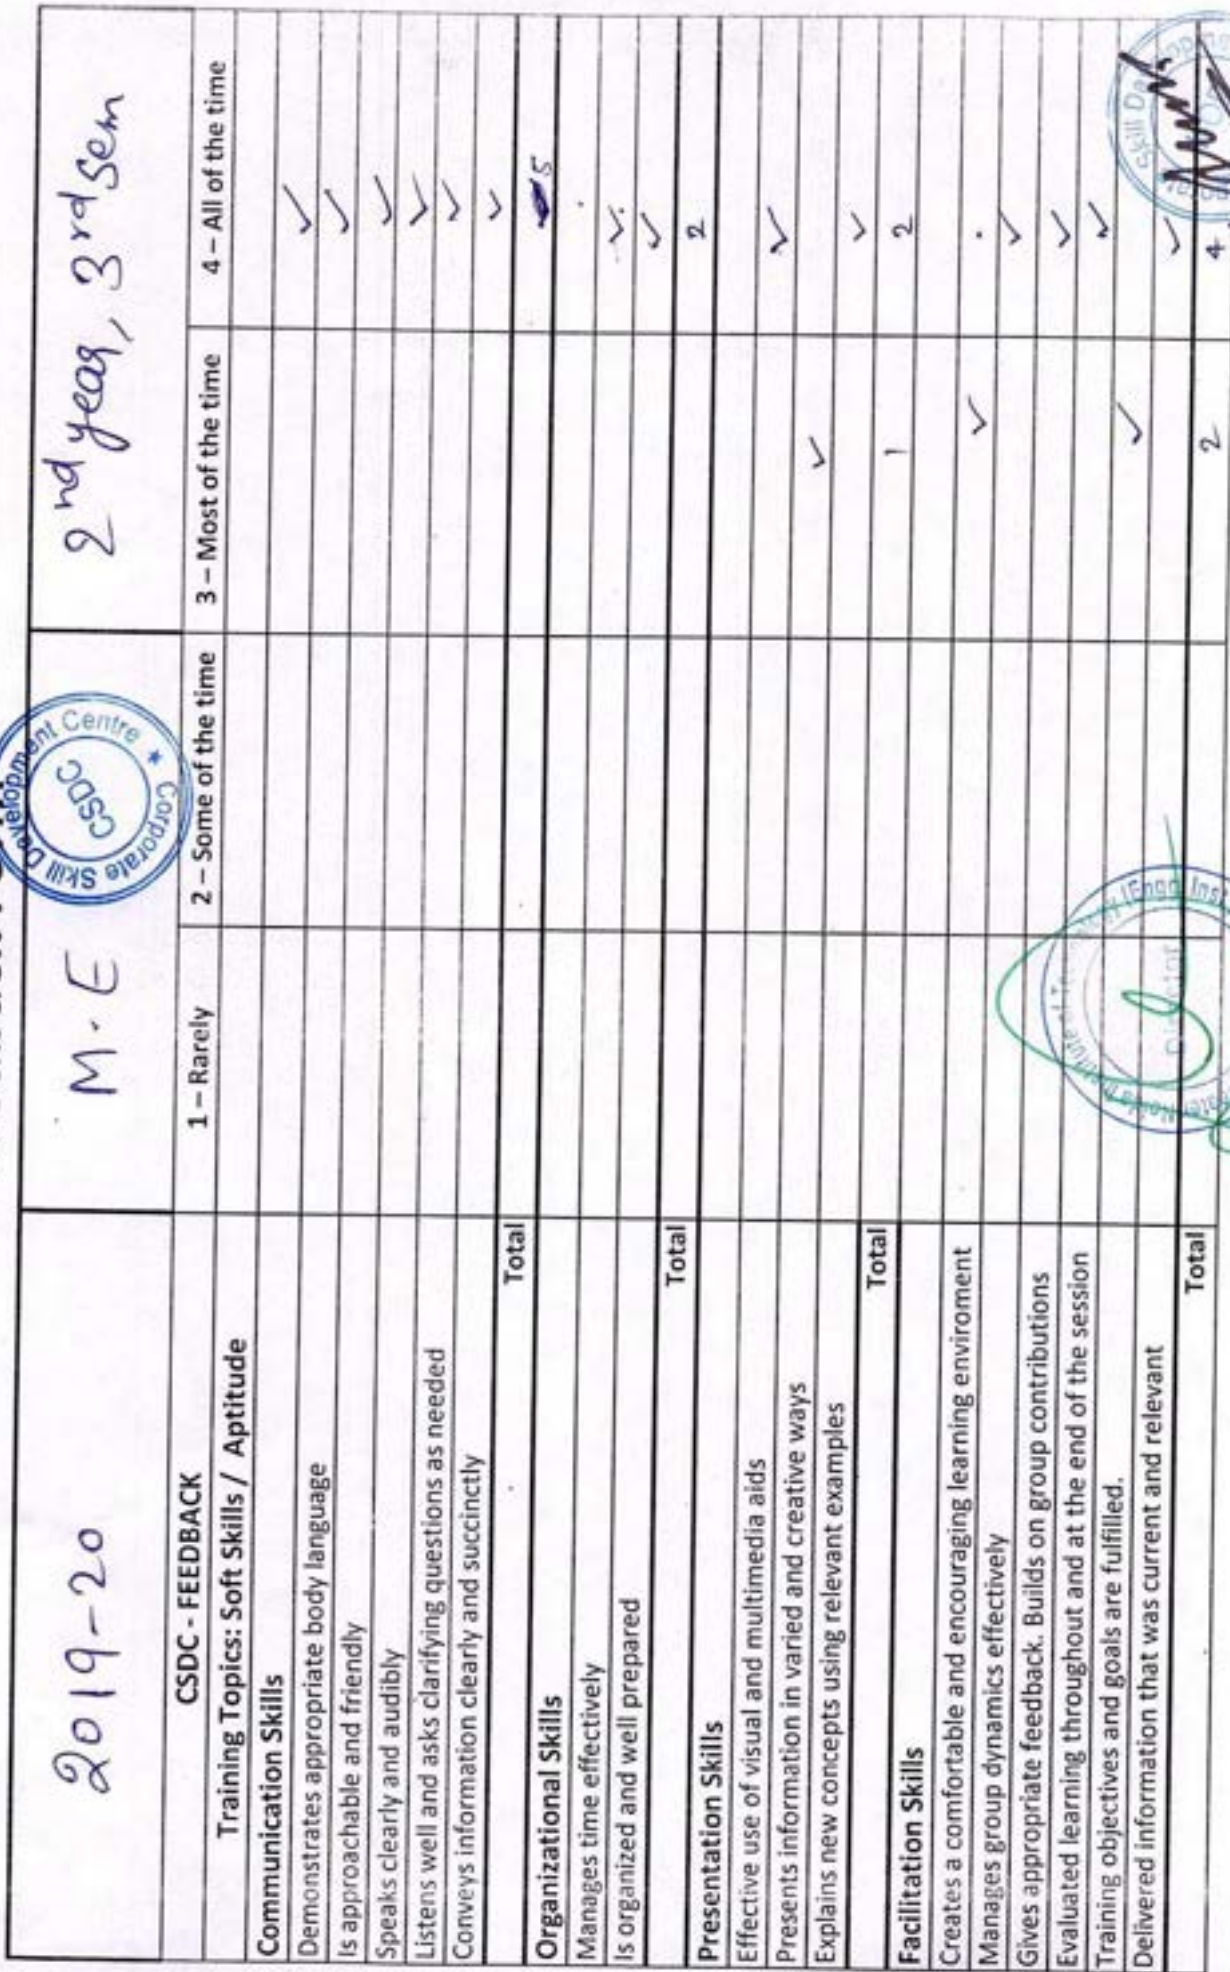 2019-20 M.E 2nd year, 3rd sem
Corporate Skill Development Centre
CSDC
CSDC - FEEDBACK 1 – Rarely 2 – Some of the time 3 – Most of the time 4 – All of the time
Training Topics: Soft Skills / Aptitude
Communication Skills
Demonstrates appropriate body language ✓
Is approachable and friendly ✓
Speaks clearly and audibly ✓
Listens well and asks clarifying questions as needed ✓
Conveys information clearly and succinctly ✓
✓
Total 5
Organizational Skills
Manages time effectively ✓
Is organized and well prepared ✓
Total 2
Presentation Skills
Effective use of visual and multimedia aids ✓
Presents information in varied and creative ways ✓
Explains new concepts using relevant examples ✓
Total 1 2
Facilitation Skills
Creates a comfortable and encouraging learning enviroment ✓
Manages group dynamics effectively ✓
Gives appropriate feedback. Builds on group contributions ✓
Evaluated learning throughout and at the end of the session ✓
Training objectives and goals are fulfilled. ✓
Delivered information that was current and relevant ✓
Total 2 4
Director
Skill